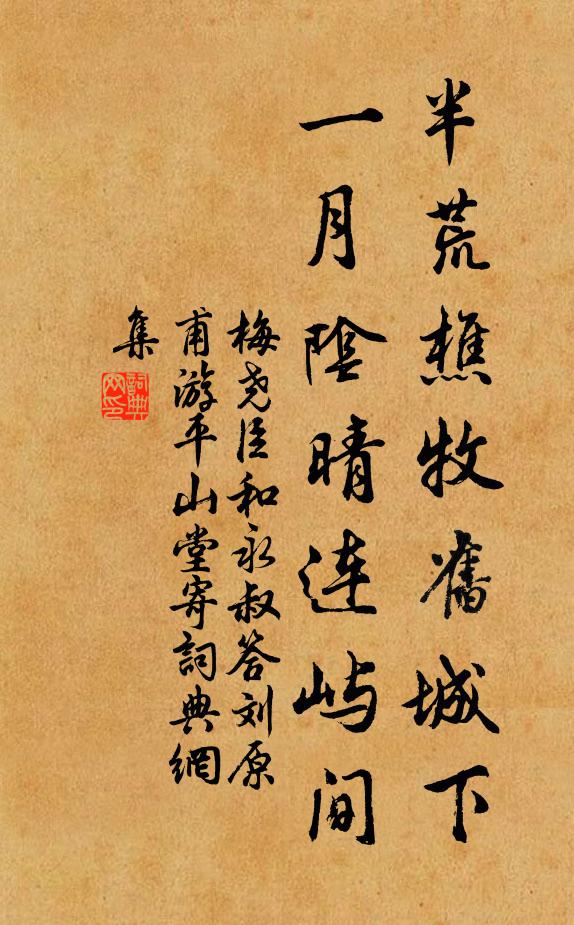 半荒樵牧舊城下
一月陰晴连屿间
梅尧臣和永叔答刘原
甫游平山堂寄詞典網
集
詞典网印